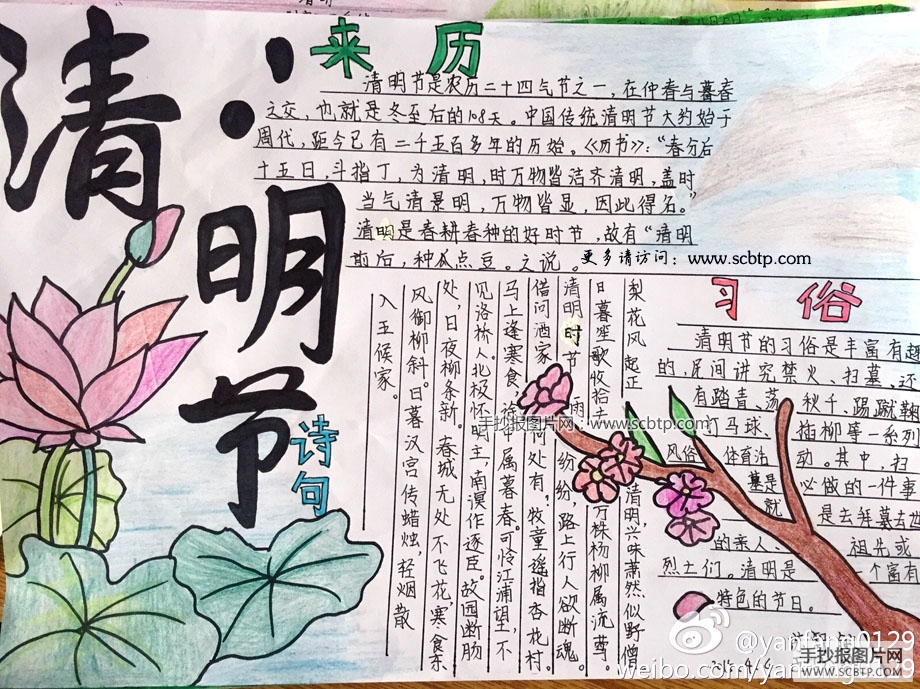 清明节
来历
清明节是农历二十四气节之一，在仲春与暮春
之交，也就是冬至后的108天。中国传统清明节大约始于
周代，距今已有二千五百多年的历始。《历书》："春分后
十五日，斗指丁，为清明，时万物皆洁齐清明，盖时
当气清景明，万物皆显，因此得名。"
清明是春耕春种的好时节，故有"清明
前后，种瓜点豆。之说。
更多请访问：www.scbtp.com
诗句
梨花风起正
清明,兴味萧然似野僧
日暮笙歌收拾去
万株杨柳属流莺。
清明时节雨
纷纷,路上行人欲断魂。
借问酒家
何处有,牧童遥指杏花村。
马上逢寒食,途中属暮春。可怜江浦望,不
见洛桥人。北极怀明主,南溟作逐臣。故园断肠
处,日夜柳条新。春城无处不飞花,寒食东
风御柳斜。日暮汉宫传蜡烛,轻烟散
入五候家。
习俗
清明节的习俗是丰富有趣
的，民间讲究禁火、扫墓、还
有踏青、荡秋千、踢蹴鞠
打马球、插柳等一系列
风俗体育活动。其中，扫
墓是必做的一件事
就是去拜墓去世
的亲人、祖先或
烈士们。清明是一个富有
特色的节日。
手抄报图片网：www.scbtp.com
@yanfang0129
weibo.com/yanfang0129
手抄报图片网
WWW.SCBTP.COM